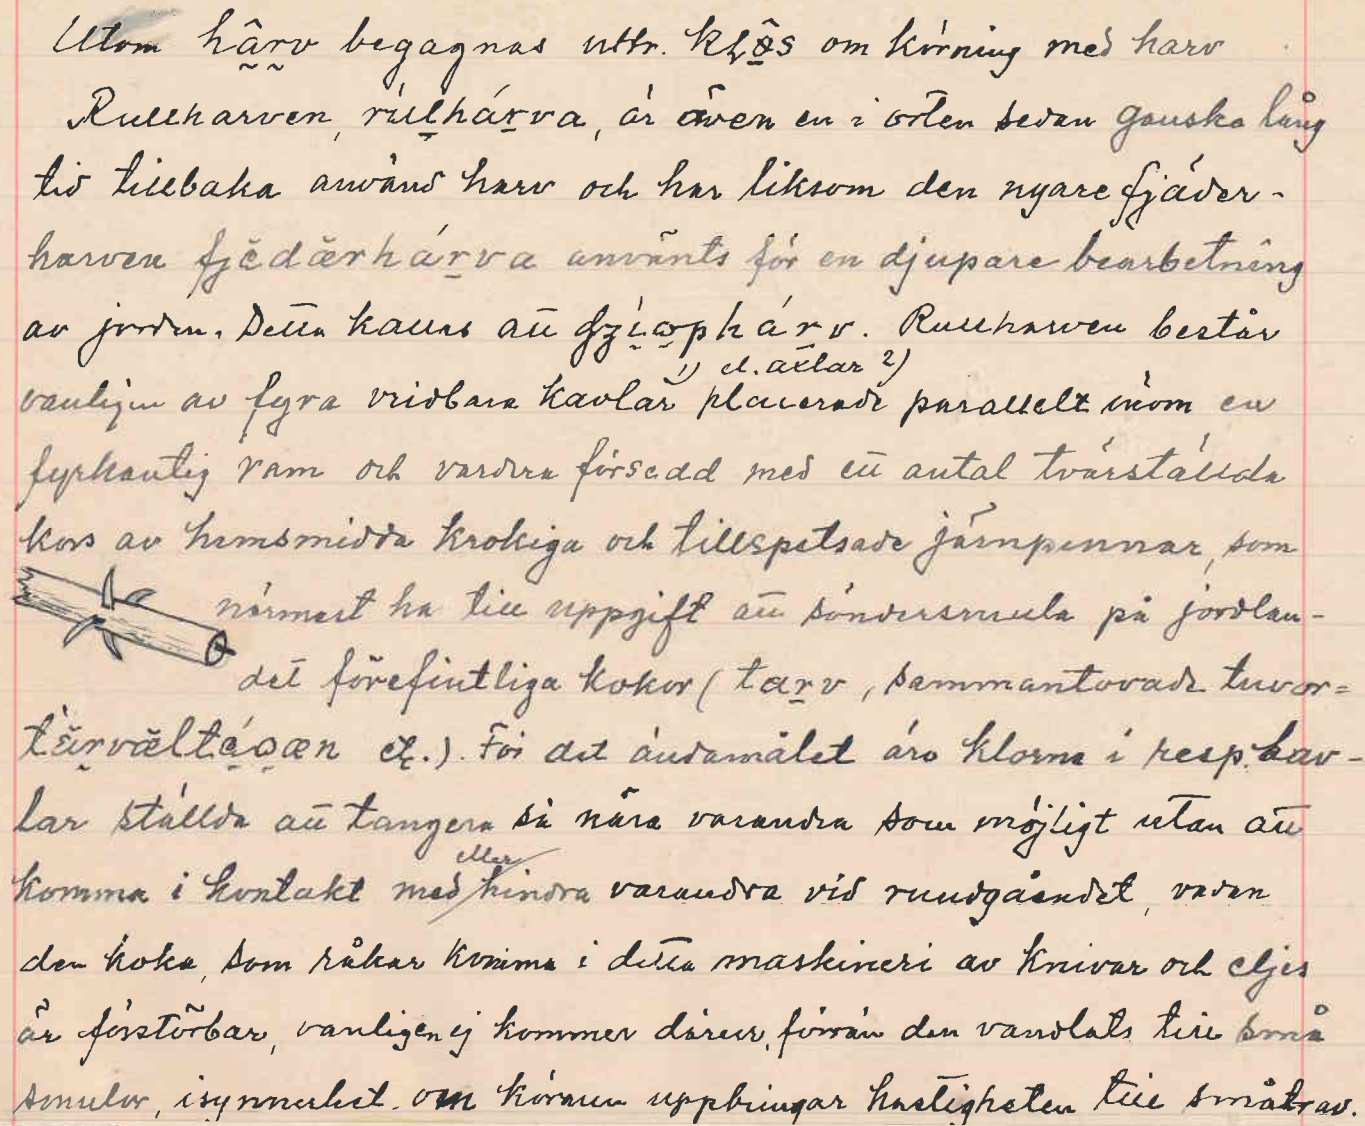 Utom hârv begagnas uttr. kḷø̂s om körning med harv
Rullharven, rúlhárva, är även en i orten sedan ganska lång
tid tillbaka använd harv och har liksom den nyare fjäder-
harven fjĕdărhárva använts för en djupare bearbetning
av jorden. Detta kallas att hárv. Rullharven består
vanligen av fyra vridbara kavlar 1) el. axlar 2) placerade parallelt inom en
fyrkantig ram och vardera försedd med ett antal tvärställda
kors av hemsmidda krokiga och tillspetsade järnpennar, som
närmast ha till uppgift att söndersmula på jordlan-
det förefintliga kokor (tarv, sammantovade tuvor=
etc.). För det ändamålet äro klorna i resp. kav-
lar ställda att tangera så nära varandra som möjligt utan att
komma i kontakt med eller hindra varandra vid rundgåendet, vadan
den koka, som råkar komma i detta maskineri av knivar och eljes
är förstörbar, vanligen ej kommer därur, förrän den vandlats till små
smulor, isynnerhet om köraren uppbringar hastigheten till småtrav.